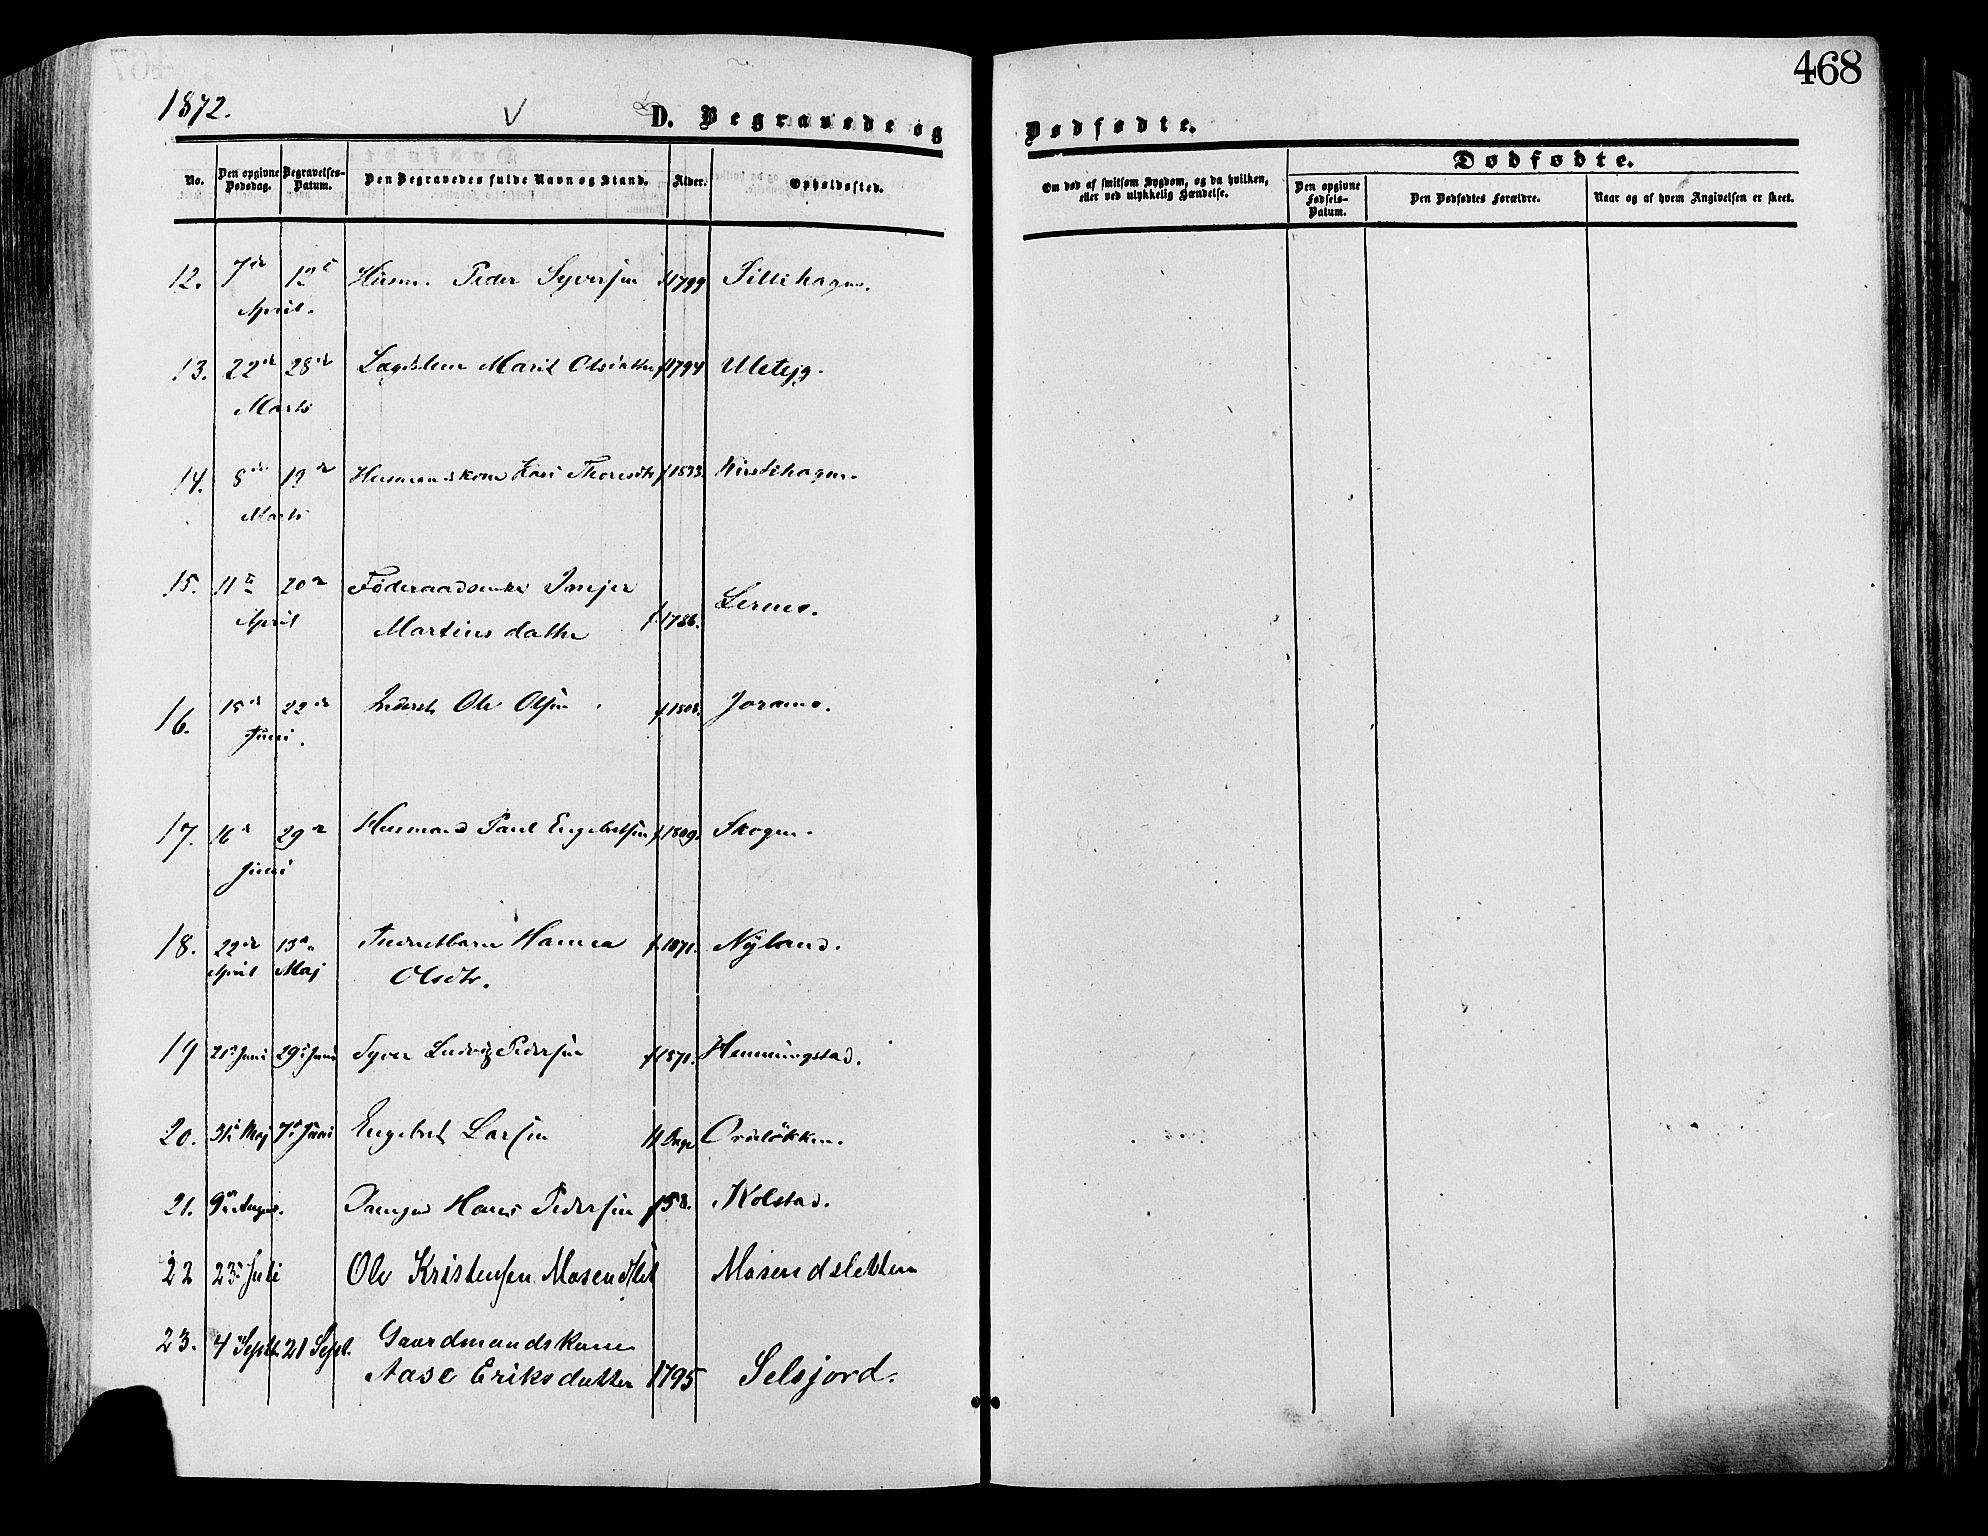 468
1872.
D. Begravede og Dødfødte.
No. Den opgivne Dødsdag. Begravelses-Datum. Den Begravedes fulde Navn og Stand. Alder. Opholdssted. Om død af smitsom Sygdom, og da hvilken, eller ved ulykkelig Hændelse. Dødfødte.
Den opgivne Fødsels-Datum. Den Dødfødtes Forældre. Naar og af hvem Angivelsen er skeet.
12. 7de 12te Husm. Peder Syversen f.1799
April.
13. 22de 28de Marit Olsdatter f.1794
Marts
14. 8de 19de Husmandskone Kari Thoresdtr f.1833. Kirstihagen.
Marts
15. 11te 20de Føderaadsenke
April Martinsdatter f.1786.
16. 15de 22de Inderst Ole Olsen f.1808. Joramo.
Juni.
17. 16de 29de Husmand Paul Engebretsen f.1809. Skogen.
Juni
18. 22de 13de Hanna f.1871. Nyland.
April Maj Olsdtr.
19 21de Juni 29de Juni Syver Ludvig Pedersen f.1871. Hemmingstad.
20. 31te Maj 7de Juni Engebret Larsen 11 Dage
21. 9de August. Hans Pedersen f.58. Kolstad.
22 23de Juli Ole Kristensen Mosendslet Mosendsletten
23. 4 Septb. 21 Sept. Gaardmandskone
Aase Eriksdatter 1795 Selsjord.